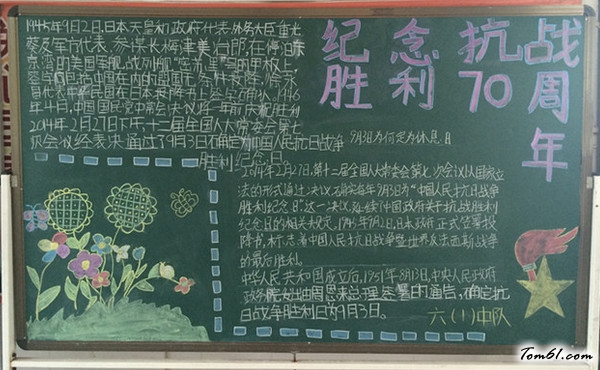 纪念抗战
胜利70周年
1945年9月2日,日本天皇和政府代表、外务大臣重光
葵及军方代表、参谋长梅津美治郎,在停泊东
京湾的美国军舰战列舰“密苏里”号的甲板上,
签字向包括中国在内的同盟无条件投降,徐永
昌代表中华民国在日本投降书上签字确认,1946
年4月,中国国民党中常会决议将
年前庆祝胜利
2014年2月27日下午,十二届全国人大常委会第七
次会议经表决通过了9月3日确定为中国人民抗日战争
胜利纪念日。
9月3日为何定为休息日
2014年2月27日,第十二届全国人大常委会第七次会议以国家立
法的形式通过决议,确定每年9月3日为“中国人民抗日战争
胜利纪念日”这一决议,延续了中国政府关于抗战胜利
纪念日的相关规定,1945年9月2日,日本政府正式签署投
降书,标志着中国人民抗日战争暨世界反法西斯战争
的最后胜利。
中华人民共和国成立后,1951年8月13日,中央人民政府
政务院发出由周恩来总理签署的通告,确定抗
日战争胜利日为9月3日。
六(1)中队
Tom61.com